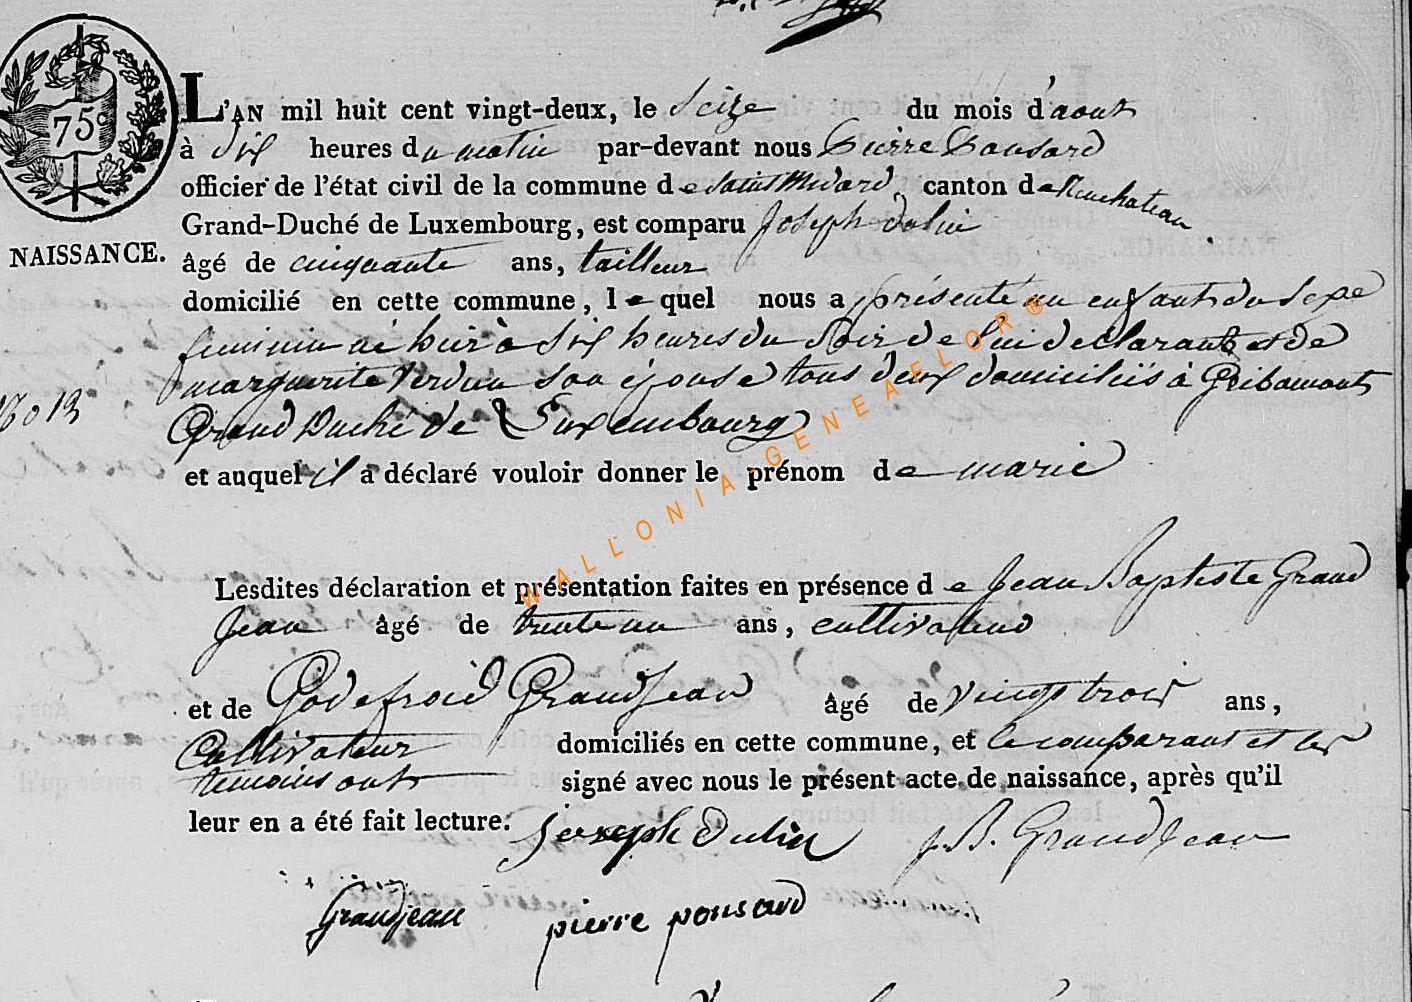 75c
L'AN mil huit cent vingt-deux, le Seize du mois d'aout
à Six heures du matin par-devant nous Pierre Ponsard
officier de l'état civil de la commune de Saint Medard, canton de Neuchateau
Grand-Duché de Luxembourg, est comparu Joseph Dulin
NAISSANCE.
âgé de cinquante ans, tailleur
domicilié en cette commune, lequel nous a présenté un enfant du Sexe
feminin né hier à Six heures du Soir de lui déclarant et de
marguerite Verdun son épouse tous deux domiciliés à Gribomont
No 13
Grand Duché de Luxembourg
et auquel il a déclaré vouloir donner le prénom de marie
WALLONIA-GENEAFLOR®
Lesdites déclaration et présentation faites en présence de Jean Baptiste Grand
Jean âgé de trente un ans, cultivateur
et de Godefroid GrandJean âgé de vingt trois ans,
Cultivateur domiciliés en cette commune, et le comparant et les
temoins ont signé avec nous le présent acte de naissance, après qu'il
leur en a été fait lecture.
Joseph Dulin J. B. GrandJean
Grandjean pierre ponsard